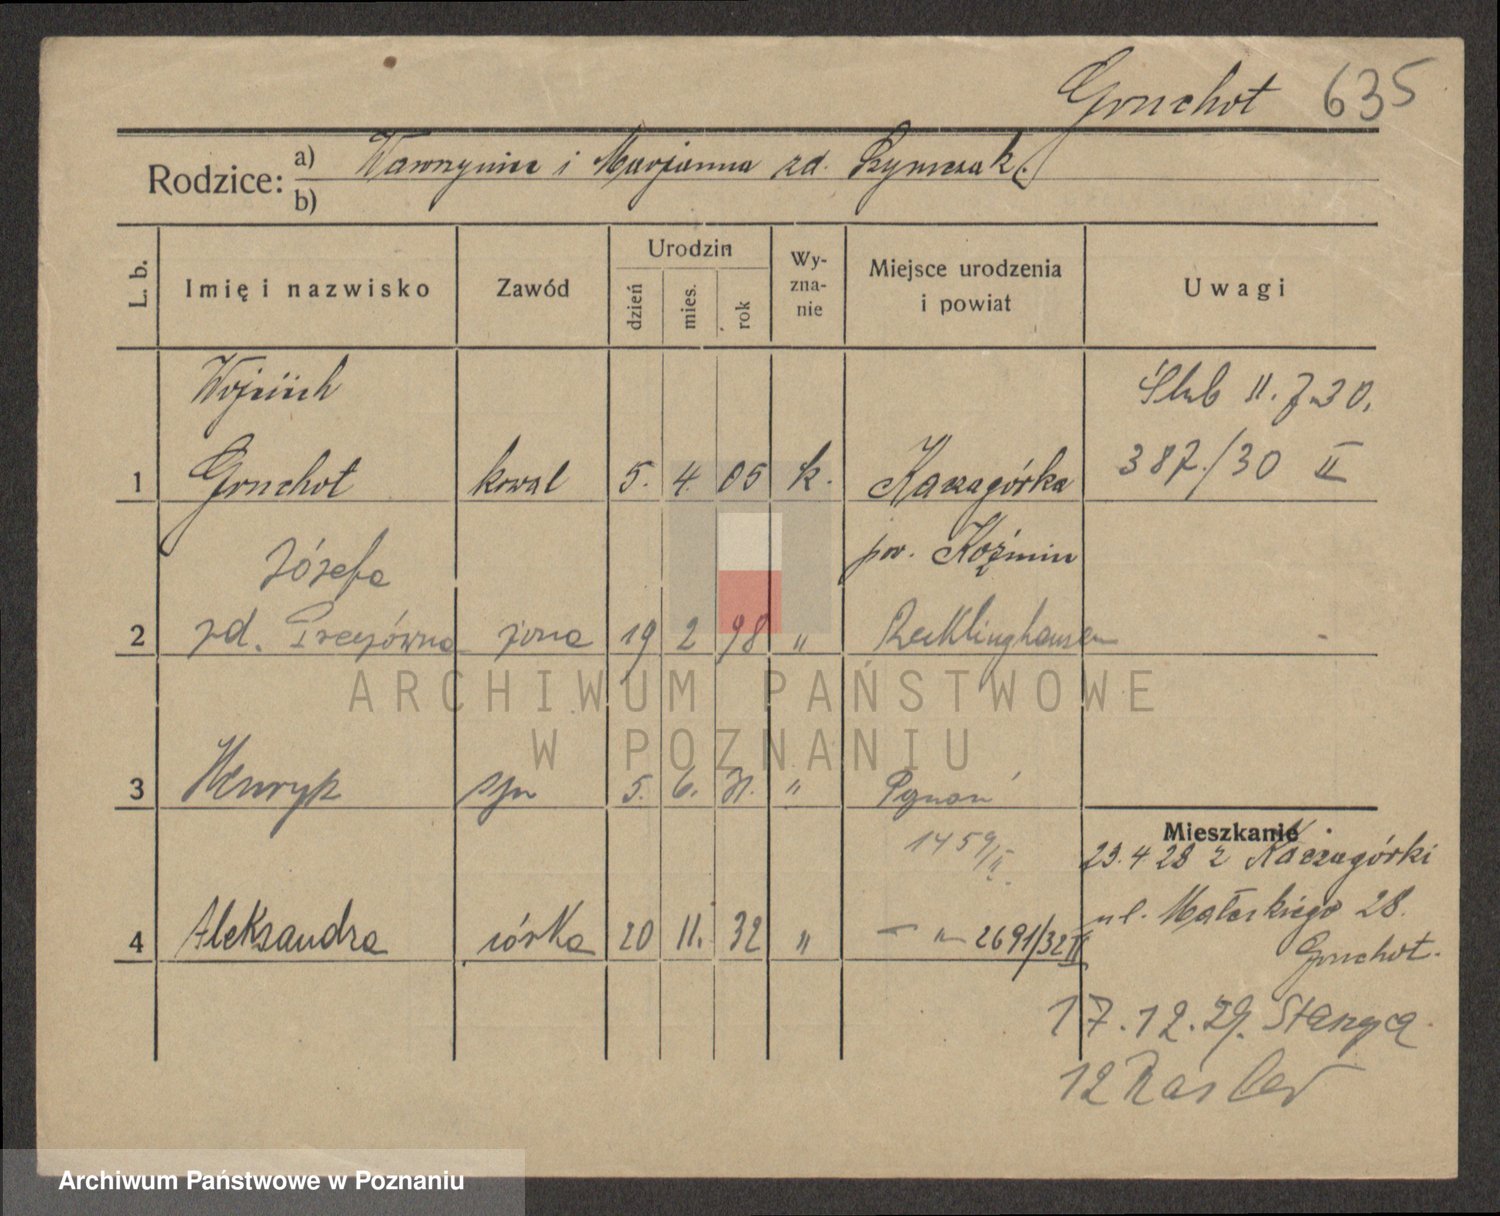 Gruchot 635
Rodzice: a) Wawrzyniec i Marjanna zd. Szymczak
b)
L. b. Imię i nazwisko Zawód Urodzin dzień mies. rok Wy-zna-nie Miejsce urodzenia i powiat Uwagi
Wojciech Ślub 11.7.30.
1 Gruchot kowal 5. 4. 05 k. Kaczagórka 387/30 II
Józefa pow. Koźmin
2 zd. żona 19 2 98 " Recklinghausen
3 Henryk syn 5. 6. 31. " Poznań
1459/II
Mieszkanie
23.4 28 z Kaczagórki
ul. Małeckiego 28.
4 Aleksandra córka 20 11. 32 " — " — 2691/32 II
Gruchot.
17.12.29. Staszyca
12 Rasler
ARCHIWUM PAŃSTWOWE
W POZNANIU
Archiwum Państwowe w Poznaniu